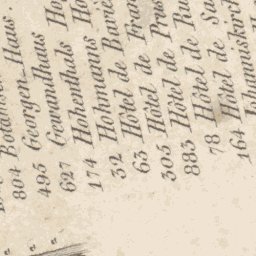 Botanisch Haus.
804 Georgen Haus
495 Gewandhaus
627 Hohenthals
174 Hohmanns
52 Hôtel de Baviè
63 Hôtel de Fran
305 Hôtel de Prus
883 Hôtel de Ru
78 Hôtel de Sa
164 Johanniskirch